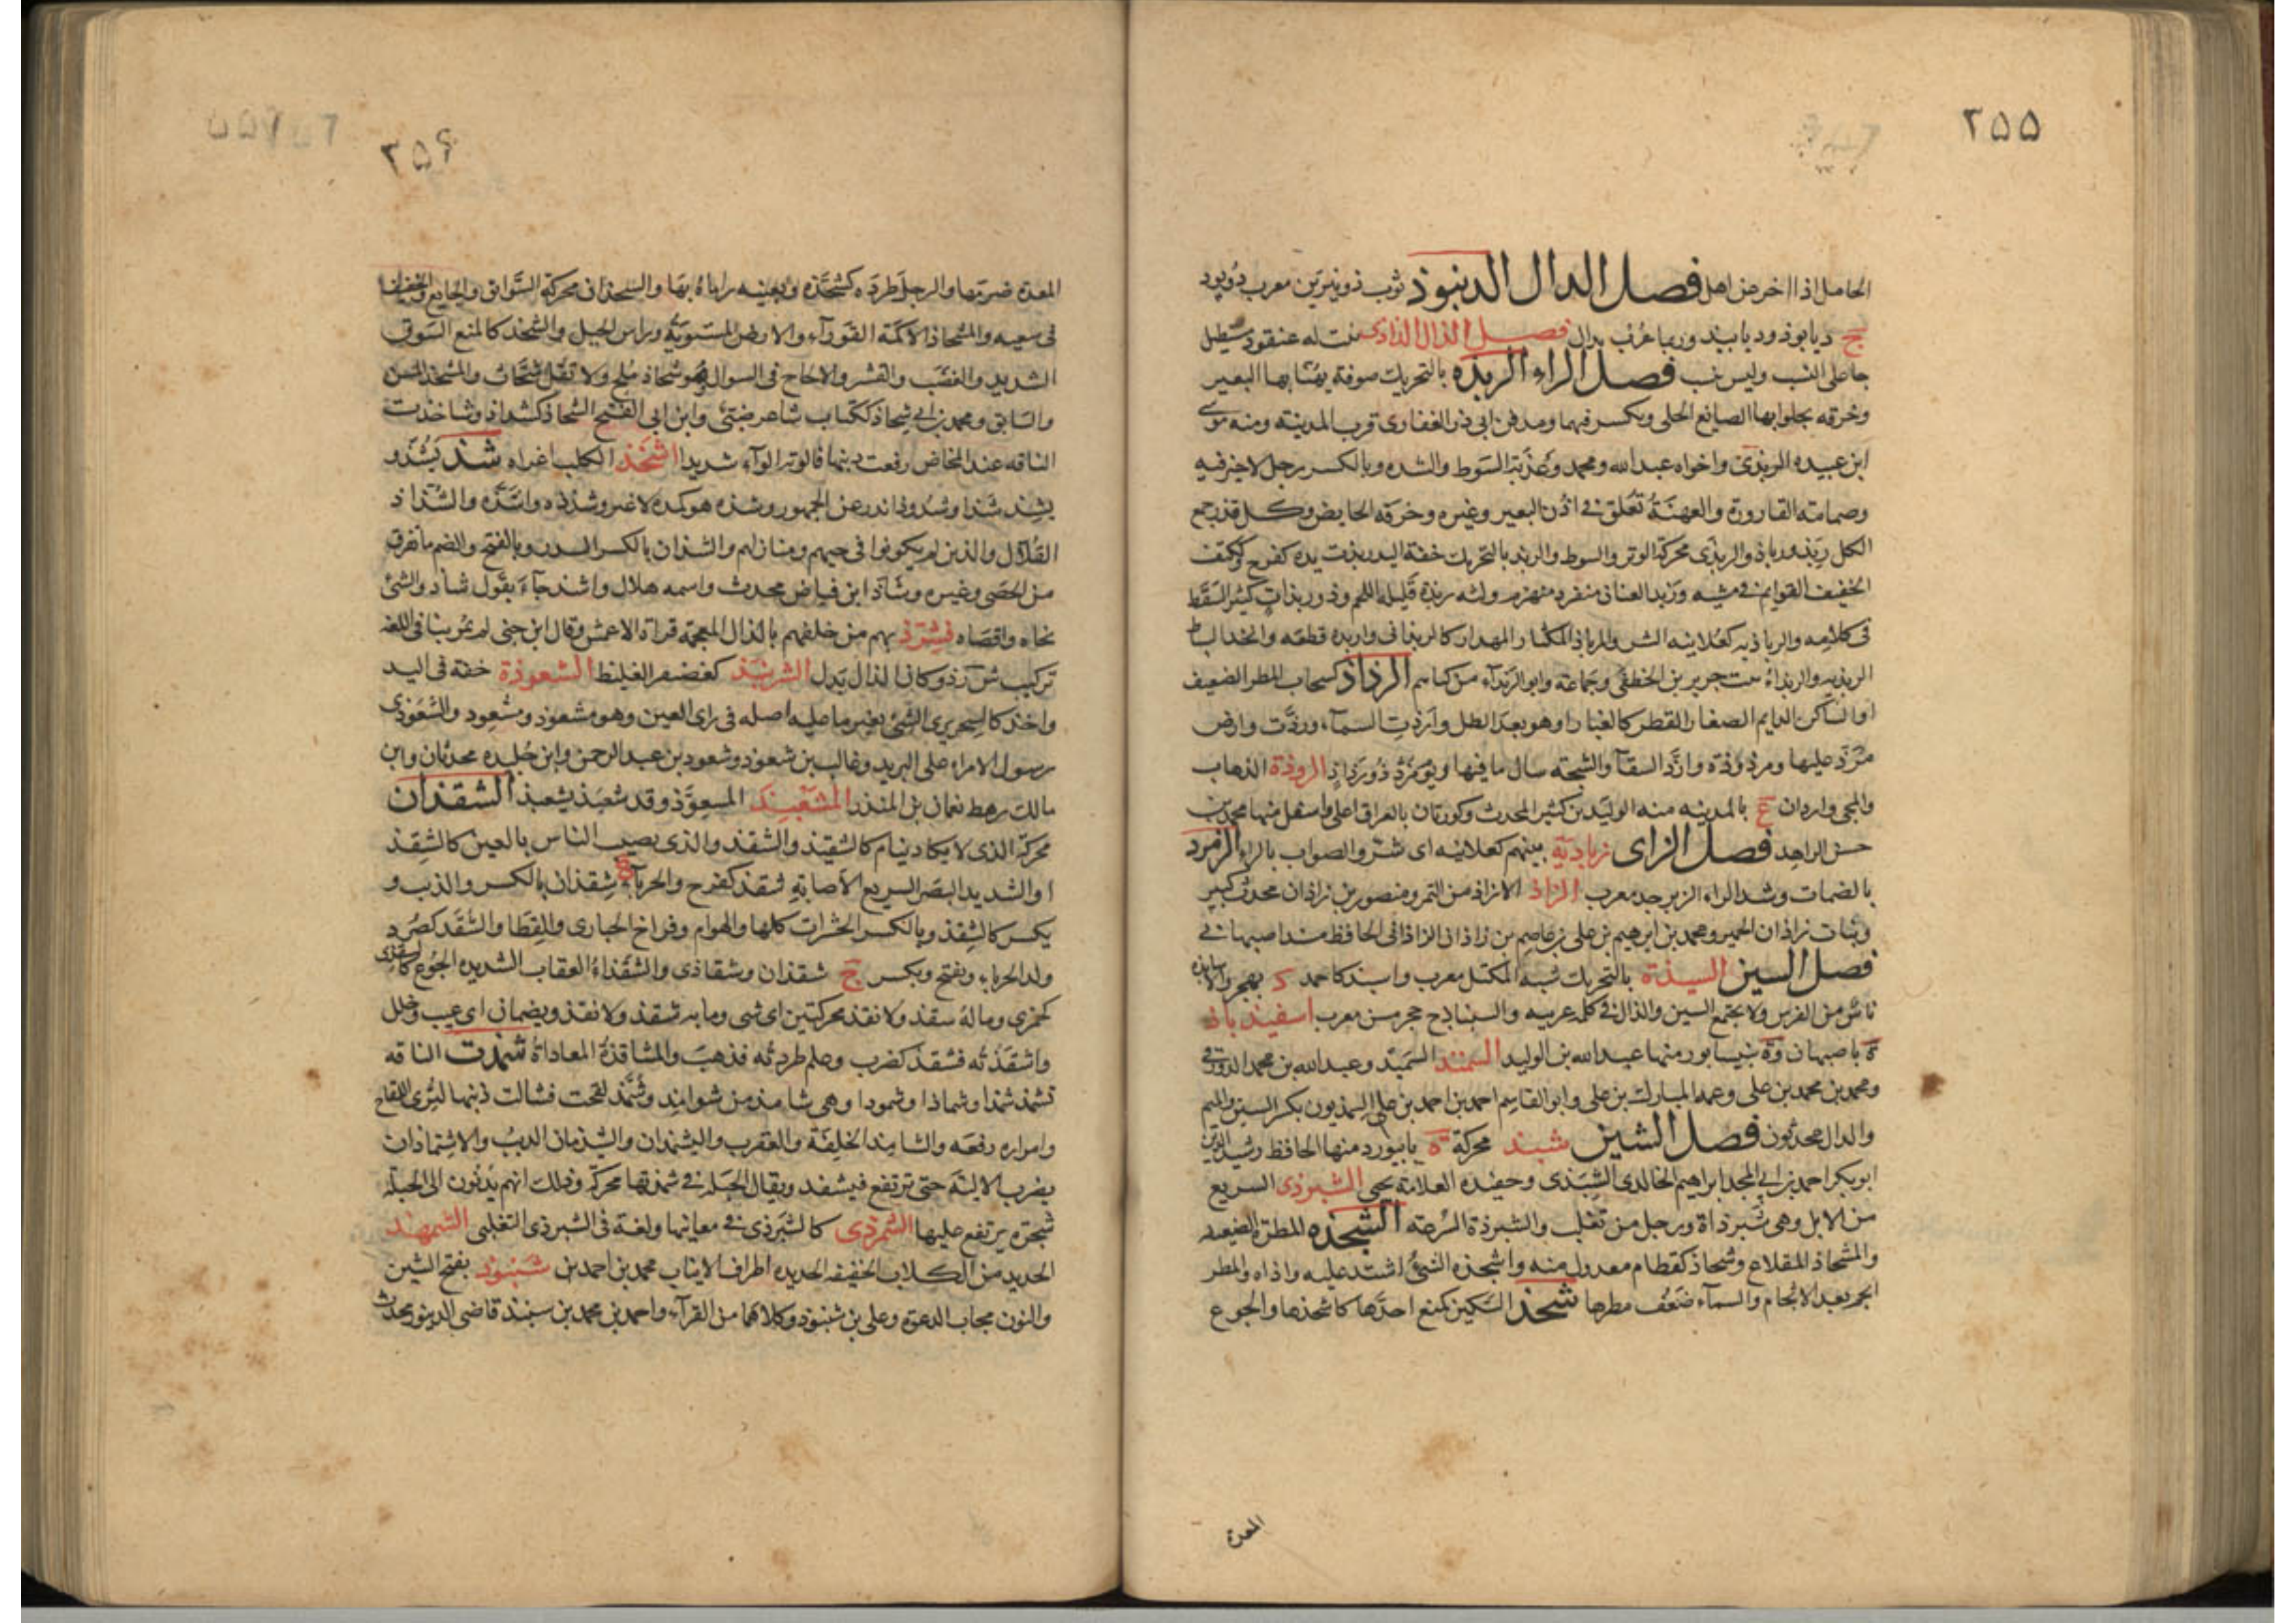 ٢٥٥
الحامل اذا اخرجن اهل فصل الدال الديبوذ ثوب ذو نيرين معرب دوپود
ج ديابوذ ودبابيذ وربما عرب بدال فصل الذال الذاذى نبت له عنقود مستطيل
جا على النسب وليس بنسب فصل الراء الربذه بالتحريك صوفة يهنا بها البعير
وخرقه يجلوا بها الصايغ الحلى ويكسر فيهما ومدفن ابى ذر الغفارى قرب المدينة ومنه موسى
ابن عبيده الربذى واخواه عبدالله ومحمد وعذبة السوط والشده وبالكسر رجل لاخير فيه
وصمامة القارورة والعهنة تعلق فى اذن البعير وغيره وخرقه الحايض وكل قذر جمع
الكل ربذ ورباذ والربذى محركة الوتر والسوط والربذ بالتحريك خفة اليد ربذت يده كفرح وككتف
الخفيف القوايم فى مشيه وربذ العنان منفرد منهزم ولثه ربذة قليله اللحم وذو ربذات كثير السقط
فى كلامه والرباذيه كعلانيه الشر والمرباذ المكثار المهذار كالربذانى واربذه قطعه واتخذ السياط
الربذيه والربذاء بنت جرير بن الخطفى وجماعة وابو الربذاء من كناهم الرذاذ كسحاب المطر الضعيف
او الساكن الدايم الصغار القطر كالغبار او هو بعد الطل وارذت السمآء ورذت وارض
مرذ عليها ومرذوذة وارذ السقآ والشجة سال ما فيها ويوم مرذ ذو رذاذ الروذة الذهاب
والمجى وراذان ع بالمدينه منه الوليد بن كثير المحدث وكورتان بالعراق اعلى واسفل منها محمد بن
حسن الزاهد فصل الزاى زباذية بينهم كعلانيه اى شر والصواب بالراء الزمرذ
بالضمات وشد الراء الزبرجد معرب الزاذ الازاذ من التمر ومنصور بن زاذان محدث كبير
وبنات زاذان الحمير ومحمد بن ابرهيم بن على بن عاصم بن زاذان الزاذانى الحافظ مسند اصبهان فى
فصل السين السبذة بالتحريك شبه المكتل معرب واسبذ كاحمد د بهجر والاسابذة
ناس من الفرس ولا يجتمع السين والذال فى كلمه عربيه والسنباذج حجر مسن معرب اسفيذباذ
ة باصبهان وة بنيسابور منها عبدالله بن الوليد السمنذ السميذ وعبدالله بن محمد الدورقى
ومحمد بن محمد بن على وعبد المبارك بن على وابو القاسم احمد بن احمد بن على السمذيون بكسر السين والميم
والذال محدثون فصل الشين شبذ محركة ة بابيورد منها الحافظ رشيد الدين
ابوبكر احمد بن ابى المجد ابراهيم الخالدى الشبذى وحفيده العلامة يحيى الشبرذى السريع
من الابل وهى شبرذاة ورجل من تغلب والشبرذة السرعه الشجذه المطرة الضعيفه
والمشجاذ المقلاع وشجاذ كقطام معدول منه واشجذه الشئ اشتد عليه واذاه والمطر
انجر بعد الانجام والسمآء ضعف مطرها شحذ السكين كمنع احدها كاشحذها والجوع
المعدة
٢٥٦
المعدة ضرمتها والرجل طرده كشحذه وبعينه رماه بها والشحذان محركة السواق والجايع والخفيف
فى سعيه والمشحاذ الاكمة القورآء والارض المستوية وراس الجبل والشحذ كالمنع السوق
الشديد والغضب والقشر والالحاح فى السوال وهو شحاذ ملح ولا تقل شحاث والمشحذ المسن
والسابق ومحمد بن ابى شحاذ ككتاب شاعر ضبى وابن ابى الفتح الشحاذ كشداد وشاخذت
الناقه عند المخاض رفعت ذنبها فالوته الوآء شديدا اشخذ الكلب اغراه شذ يشذ و
يشذ شذا وشذوذا ندر عن الجمهور وشذه هو كمده لا غير وشذذه واشذه والشذاذ
القلال والذين لم يكونوا فى حيهم ومنازلهم والشذان بالكسر السدر وبالفتح والضم ما تفرق
من الحصى وغيره وشاذ ابن فياض محدث واسمه هلال واشذ جآء بقول شاذ والشئ
نحاه واقصاه فشرذ بهم من خلفهم بالذال المعجمه قراة الاعمش وقال ابن جنى لم يمر بنا فى اللغه
تركيب ش ر ذ وكان الذال بدل الشرنبذ كغضنفر الغليظ الشعوذة خفة فى اليد
واخذ كالسحر يرى الشئ بغير ما عليه اصله فى راى العين وهو مشعوذ ومشعوذ والشعوذى
رسول الامراء على البريد وغالب بن شعوذ وشعوذ بن عبد الرحمن وابن خليده محدثان وابن
مالك رهط نعمان بن المنذر المشعبذ المشعوذ وقد شعبذ يشعبذ الشقذان
محركة الذى لا يكاد ينام كالشقيذ والشقذ والذى يصيب الناس بالعين كالشقذ
او الشديد البصر السريع الاصابة شقذ كفرح والحربآء ج شقذان بالكسر والذيب و
يكسر كالشقذ وبالكسر الحشرات كلها والهوام وفراخ الحبارى والقطا والشقذ كصرد
ولد الحرباء ويفتح ويكسر ج شقذان وشقاذى والشقذاء العقاب الشديده الجوع كالشقذى
كجمزى وماله شقذ ولا نقذ محركتين اى شى وما به شقذ ولا نقذ ويضمان اى عيب وخلل
واشقذته فشقذ كضرب وعلم طردته فذهب والمشاقذة المعاداة شمذت الناقه
تشمذ شمذا وشماذا وشموذا وهى شامذ من شوامذ وشمذ لقحت فشالت ذنبها لترى اللقاح
وامراره رفعه والشامذ الخلفة والعقرب والشيمذان والشيذمان الذيب والاشتماذ ان
يضرب الالية حتى ترتفع فيسفد ويقال للنخل فى شمذتها محركة وذلك انهم يدنون الى النخلة
شجرة يرتفع عليها الشمرذى كالشبرذى فى معانيها ولغة فى الشبرذى التغلبى الشمهذ
الحديد من الكلاب الخفيفه الحديده اطراف الانياب محمد بن احمد بن شنبوذ بفتح الشين
والنون مجاب الدعوة وعلى بن شنبوذ وكلاهما من القرآء واحمد بن محمد بن سنبذ قاضى الدينور محدث